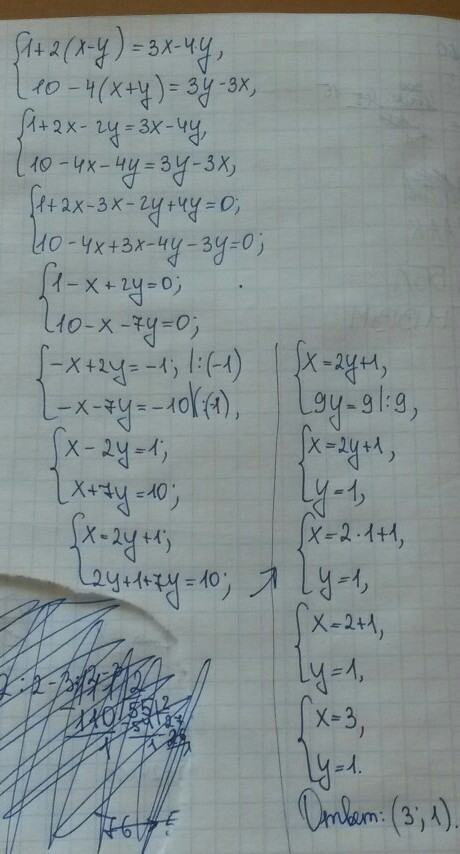 {1+2(x-y)=3x-4y,
10-4(x+y)=3y-3x,
{1+2x-2y=3x-4y,
10-4x-4y=3y-3x,
{1+2x-3x-2y+4y=0;
10-4x+3x-4y-3y=0;
{1-x+2y=0;
10-x-7y=0;
{-x+2y=-1; |:(-1)
-x-7y=-10 |:(-1),
{x-2y=1;
x+7y=10;
{x=2y+1;
2y+1+7y=10;
{x=2y+1,
9y=9|:9,
{x=2y+1,
y=1,
{x=2·1+1,
y=1,
{x=2+1,
y=1,
{x=3,
y=1.
Ответ: (3; 1).